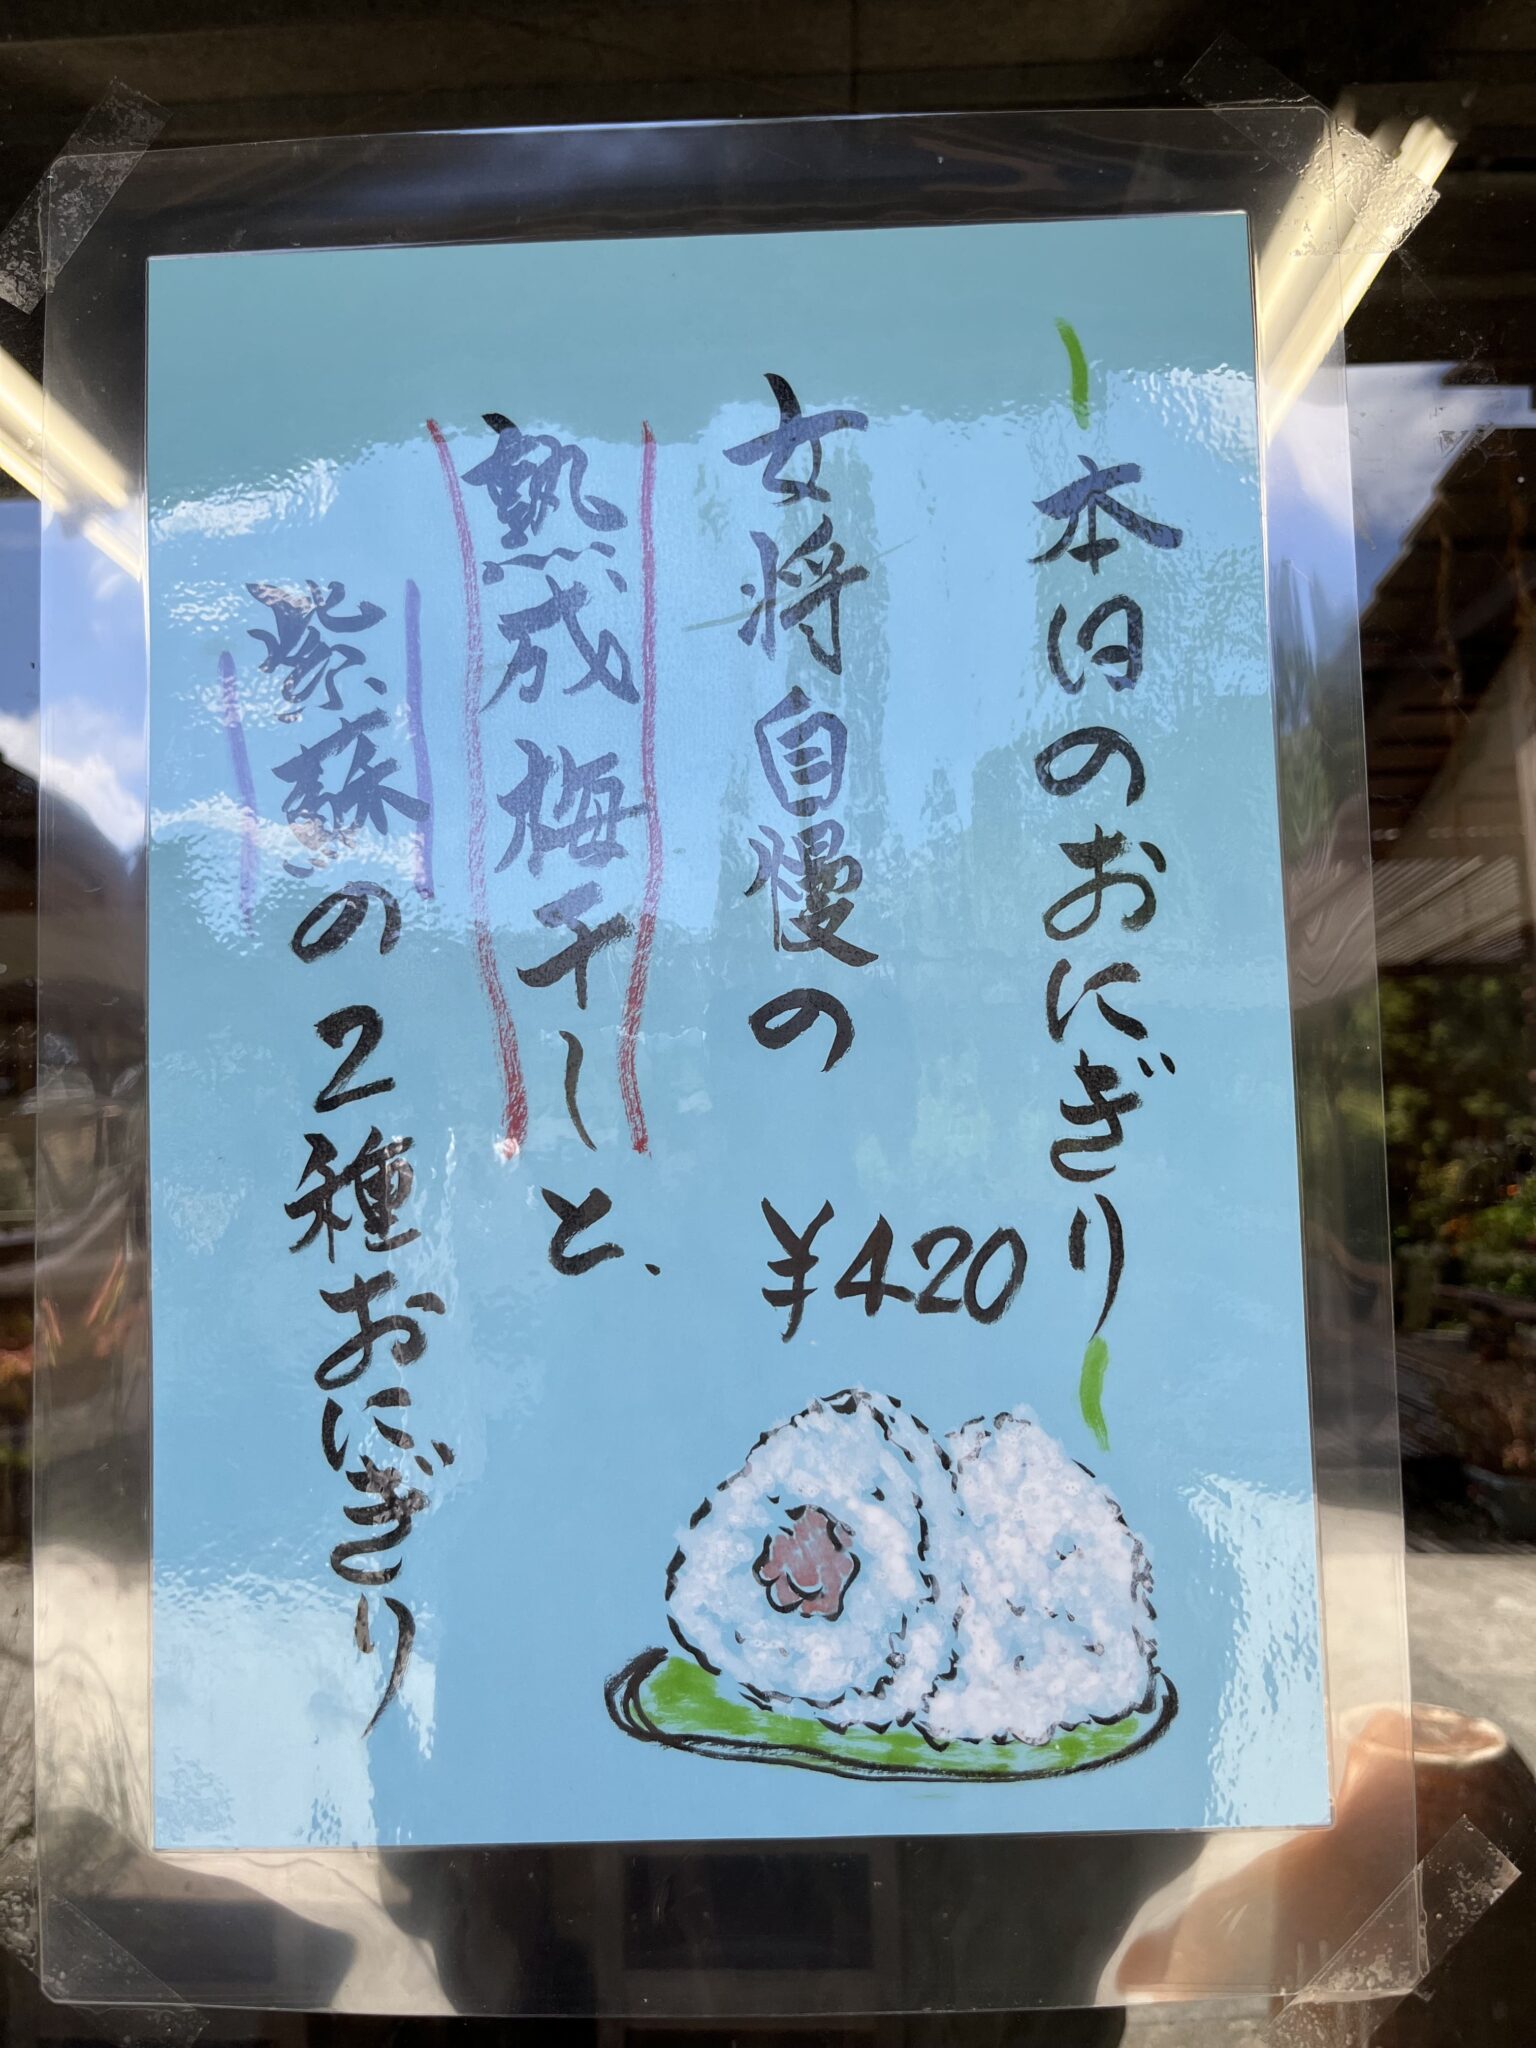 本日のおにぎり
¥420
女将自慢の
熟成梅干しと、
紫蘇の2種おにぎり